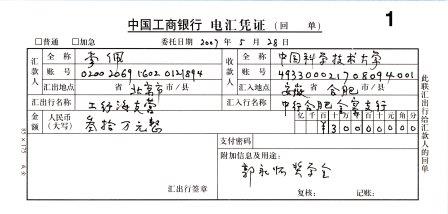 1
中国工商银行 电汇凭证（回 单）
□普通 □加急 委托日期 2007 年 5 月 28 日
汇款人 全称 李佩 收款人 全称 中国科学技术大学
账号 0200206916020121894 账号 4933000217080940001
汇出地点 省 北京市/县 汇入地点 安徽省 合肥市/县
汇出行名称 汇入行名称
工行海支营 中行合肥 支行
金额 人民币（大写） 叁拾万元整 亿千百十万千百十元角分
¥30000000
支付密码
附加信息及用途：
郭永怀奖学金
汇出行签章 复核： 记账：
此联汇出行给汇款人的回单